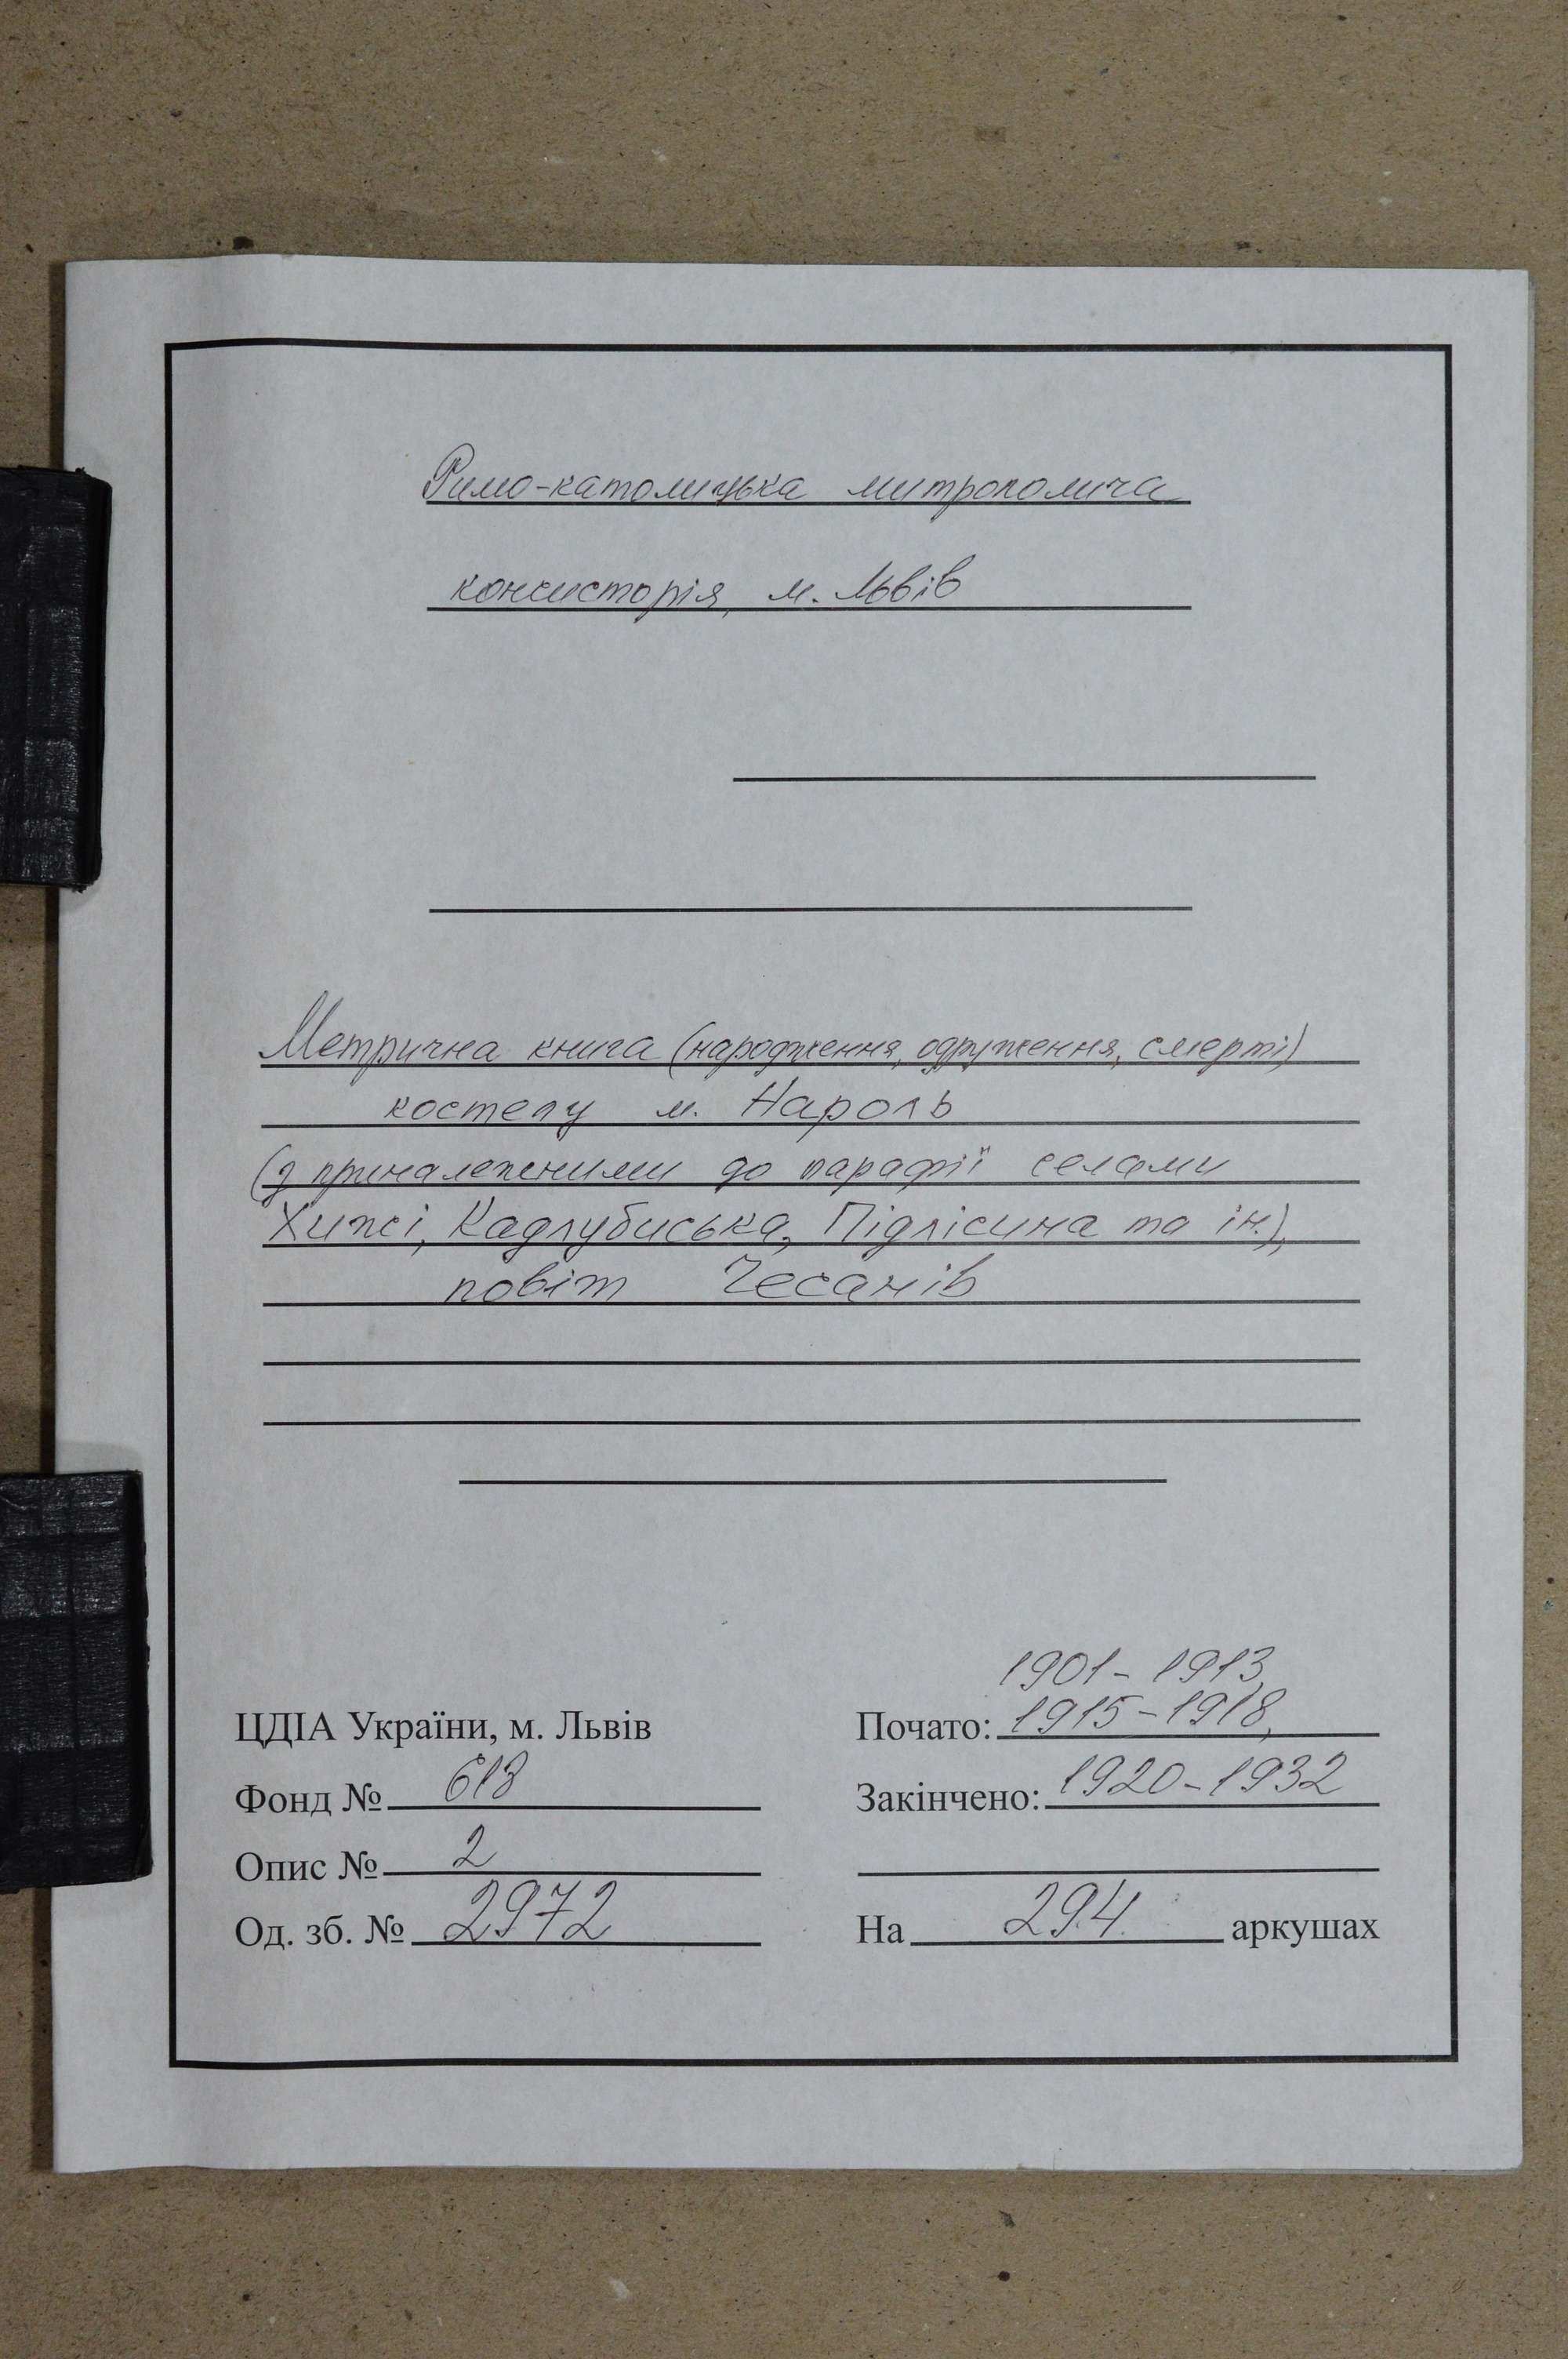 Римо-католицька митрополича
консисторія, м. Львів
Метрична книга (народження, одруження, смерті)
костелу м. Нароль
(з приналежними до парафії селами
Хижі, Кадлубиська, Підлісина та ін.),
повіт Чесанів
1901-1913,
ЦДІА України, м. Львів Почато: 1915-1918,
Фонд № 618 Закінчено: 1920-1932
Опис № 2
Од. зб. № 2972 На 294 аркушах